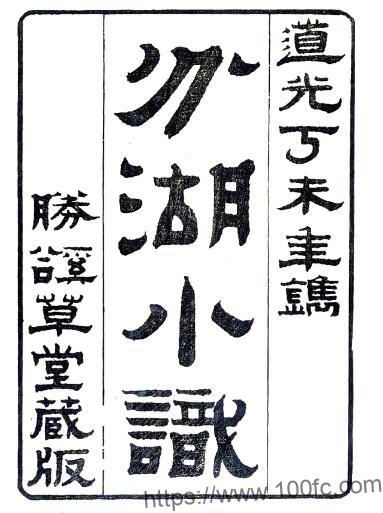 道光丁未年鐫
分湖小識
勝谿草堂藏版
https://www.100fc.com